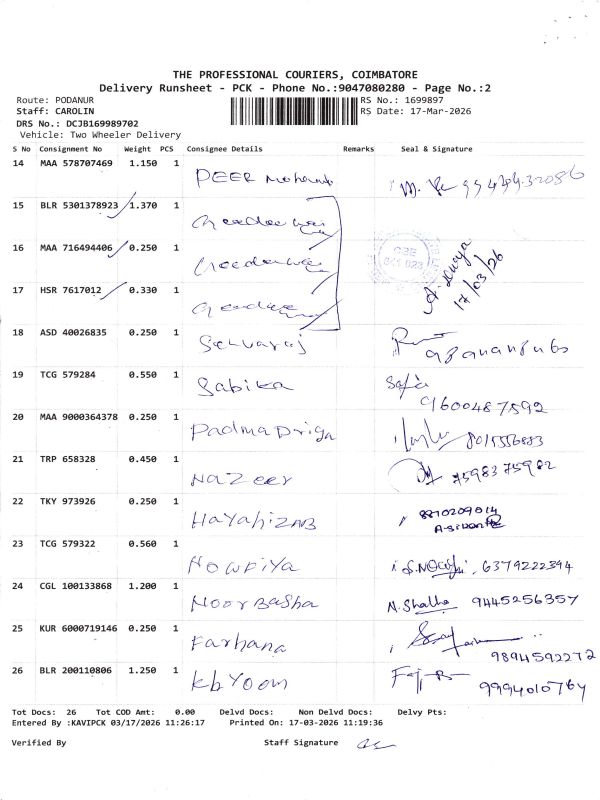 THE PROFESSIONAL COURIERS, COIMBATORE
Delivery Runsheet - PCK - Phone No.:9047080280 - Page No.:2
Route: PODANUR RS No.: 1699897
Staff: CAROLIN RS Date: 17-Mar-2026
DRS No.: DCJB169989702
Vehicle: Two Wheeler Delivery
S No Consignment No Weight PCS Consignee Details Remarks Seal & Signature
14 MAA 578707469 1.150 1
PEER Mohamed
15 BLR 5301378923 1.370 1
16 MAA 716494406 0.250 1
17 HSR 7617012 0.330 1
17/03/26
18 ASD 40026835 0.250 1
Selvaraj
19 TCG 579284 0.550 1
Sabika
9600487592
20 MAA 9000364378 0.250 1
Padma Priya
21 TRP 658328 0.450 1
Nazeer 7598375982
22 TKY 973926 0.250 1
8870209014
23 TCG 579322 0.560 1
Nowfiya 6379222394
24 CGL 100133868 1.200 1
Noor Basha N. Shalha 9445256357
25 KUR 6000719146 0.250 1
Farhana
9894592272
26 BLR 200110806 1.250 1
9994010764
Tot Docs: 26 Tot COD Amt: 0.00 Delvd Docs: Non Delvd Docs: Delvy Pts:
Entered By :KAVIPCK 03/17/2026 11:26:17 Printed On: 17-03-2026 11:19:36
Verified By Staff Signature